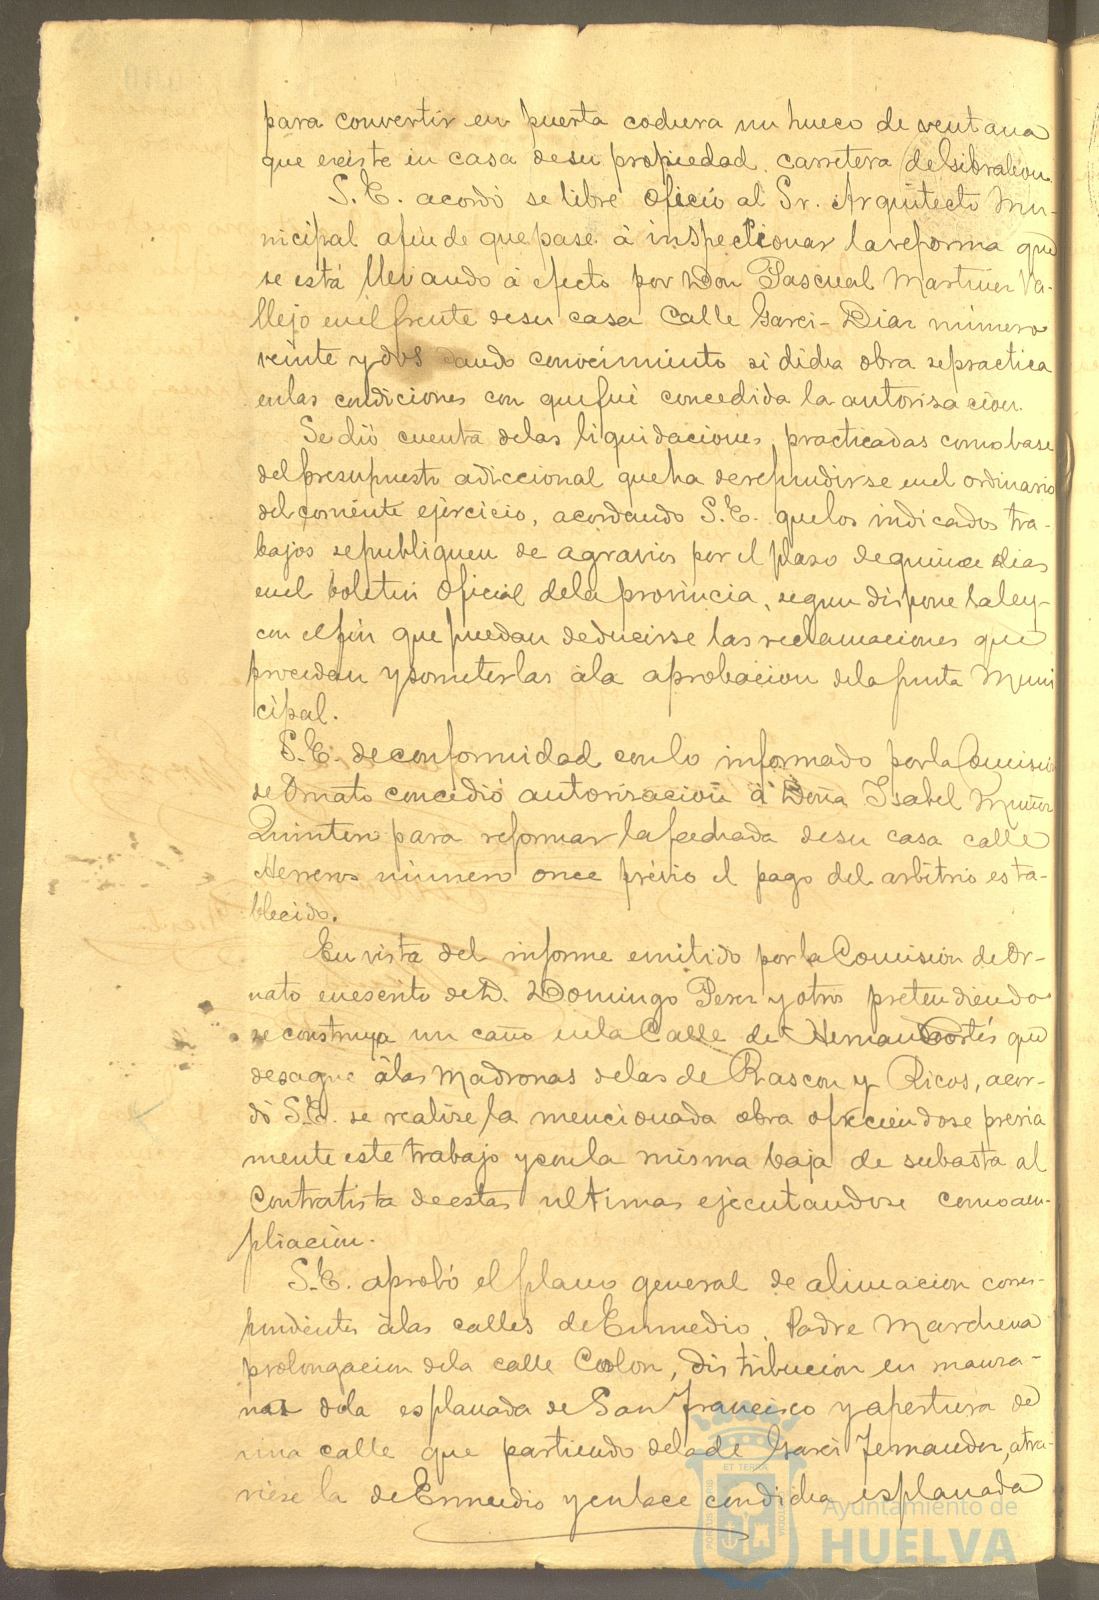 para convertir en puerta cochera un hueco de ventana
que existe en casa de su propiedad carretera de Gibraleon.
S. E. acordó se libre oficio al Sr. Arquitecto Mu-
nicipal afin de que pase á inspeccionar la reforma que
se está llevando á efecto por Don Pascual Martinez Va-
llejo en el frente de su casa Calle Garci-Diaz número
veinte y dos dando conocimiento si dicha obra se practica
en las condiciones con que fué concedida la autorisacion.
Se dió cuenta de las liquidaciones practicadas como base
del presupuesto adiccional que ha de refundirse en el ordinario
del corriente ejercicio, acordando S. E. que los indicados tra-
bajos se publiquen de agravios por el plaso de quince dias
en el boletin oficial de la provincia, segun dispone la ley
con el fin que puedan deducirse las reclamaciones que
procedan y someterlas á la aprobacion de la Junta Muni
cipal.
S. E. de conformidad con lo informado por la Comision
de Ornato concedió autorisacion á Doña Isabel Muñoz
Quintero para reformar la fachada de su casa calle
Herreros número once prévio el pago del arbitrio esta-
blecido.
En vista del informe emitido por la Comisión de Or-
nato en escrito de D. Domingo Perez y otros pretendiendo
se construya un caño en la Calle de Hernan Cortés que
desague á las Madronas de las de Rascon y Ricos, acor-
dó S. E. se realise la mencionada obra ofreciendose previa
mente este trabajo y con la misma baja de subasta al
Contratista de estas ultimas ejecutandose como am-
pliación.
S. E. aprobó el plano general de alineacion corres-
pondientes á las calles de Enmedio, Padre Marchena
prolongacion de la calle Colon, distribución en manza-
nas de la esplanada de San Francisco y apertura de
una calle que partiendo de la de Garci Fernandez, atra-
viese la de Enmedio y enlace con dicha esplanada
ET TERRÆ
PORTUS MARIS
CUSTODIA
Ayuntamiento de
HUELVA